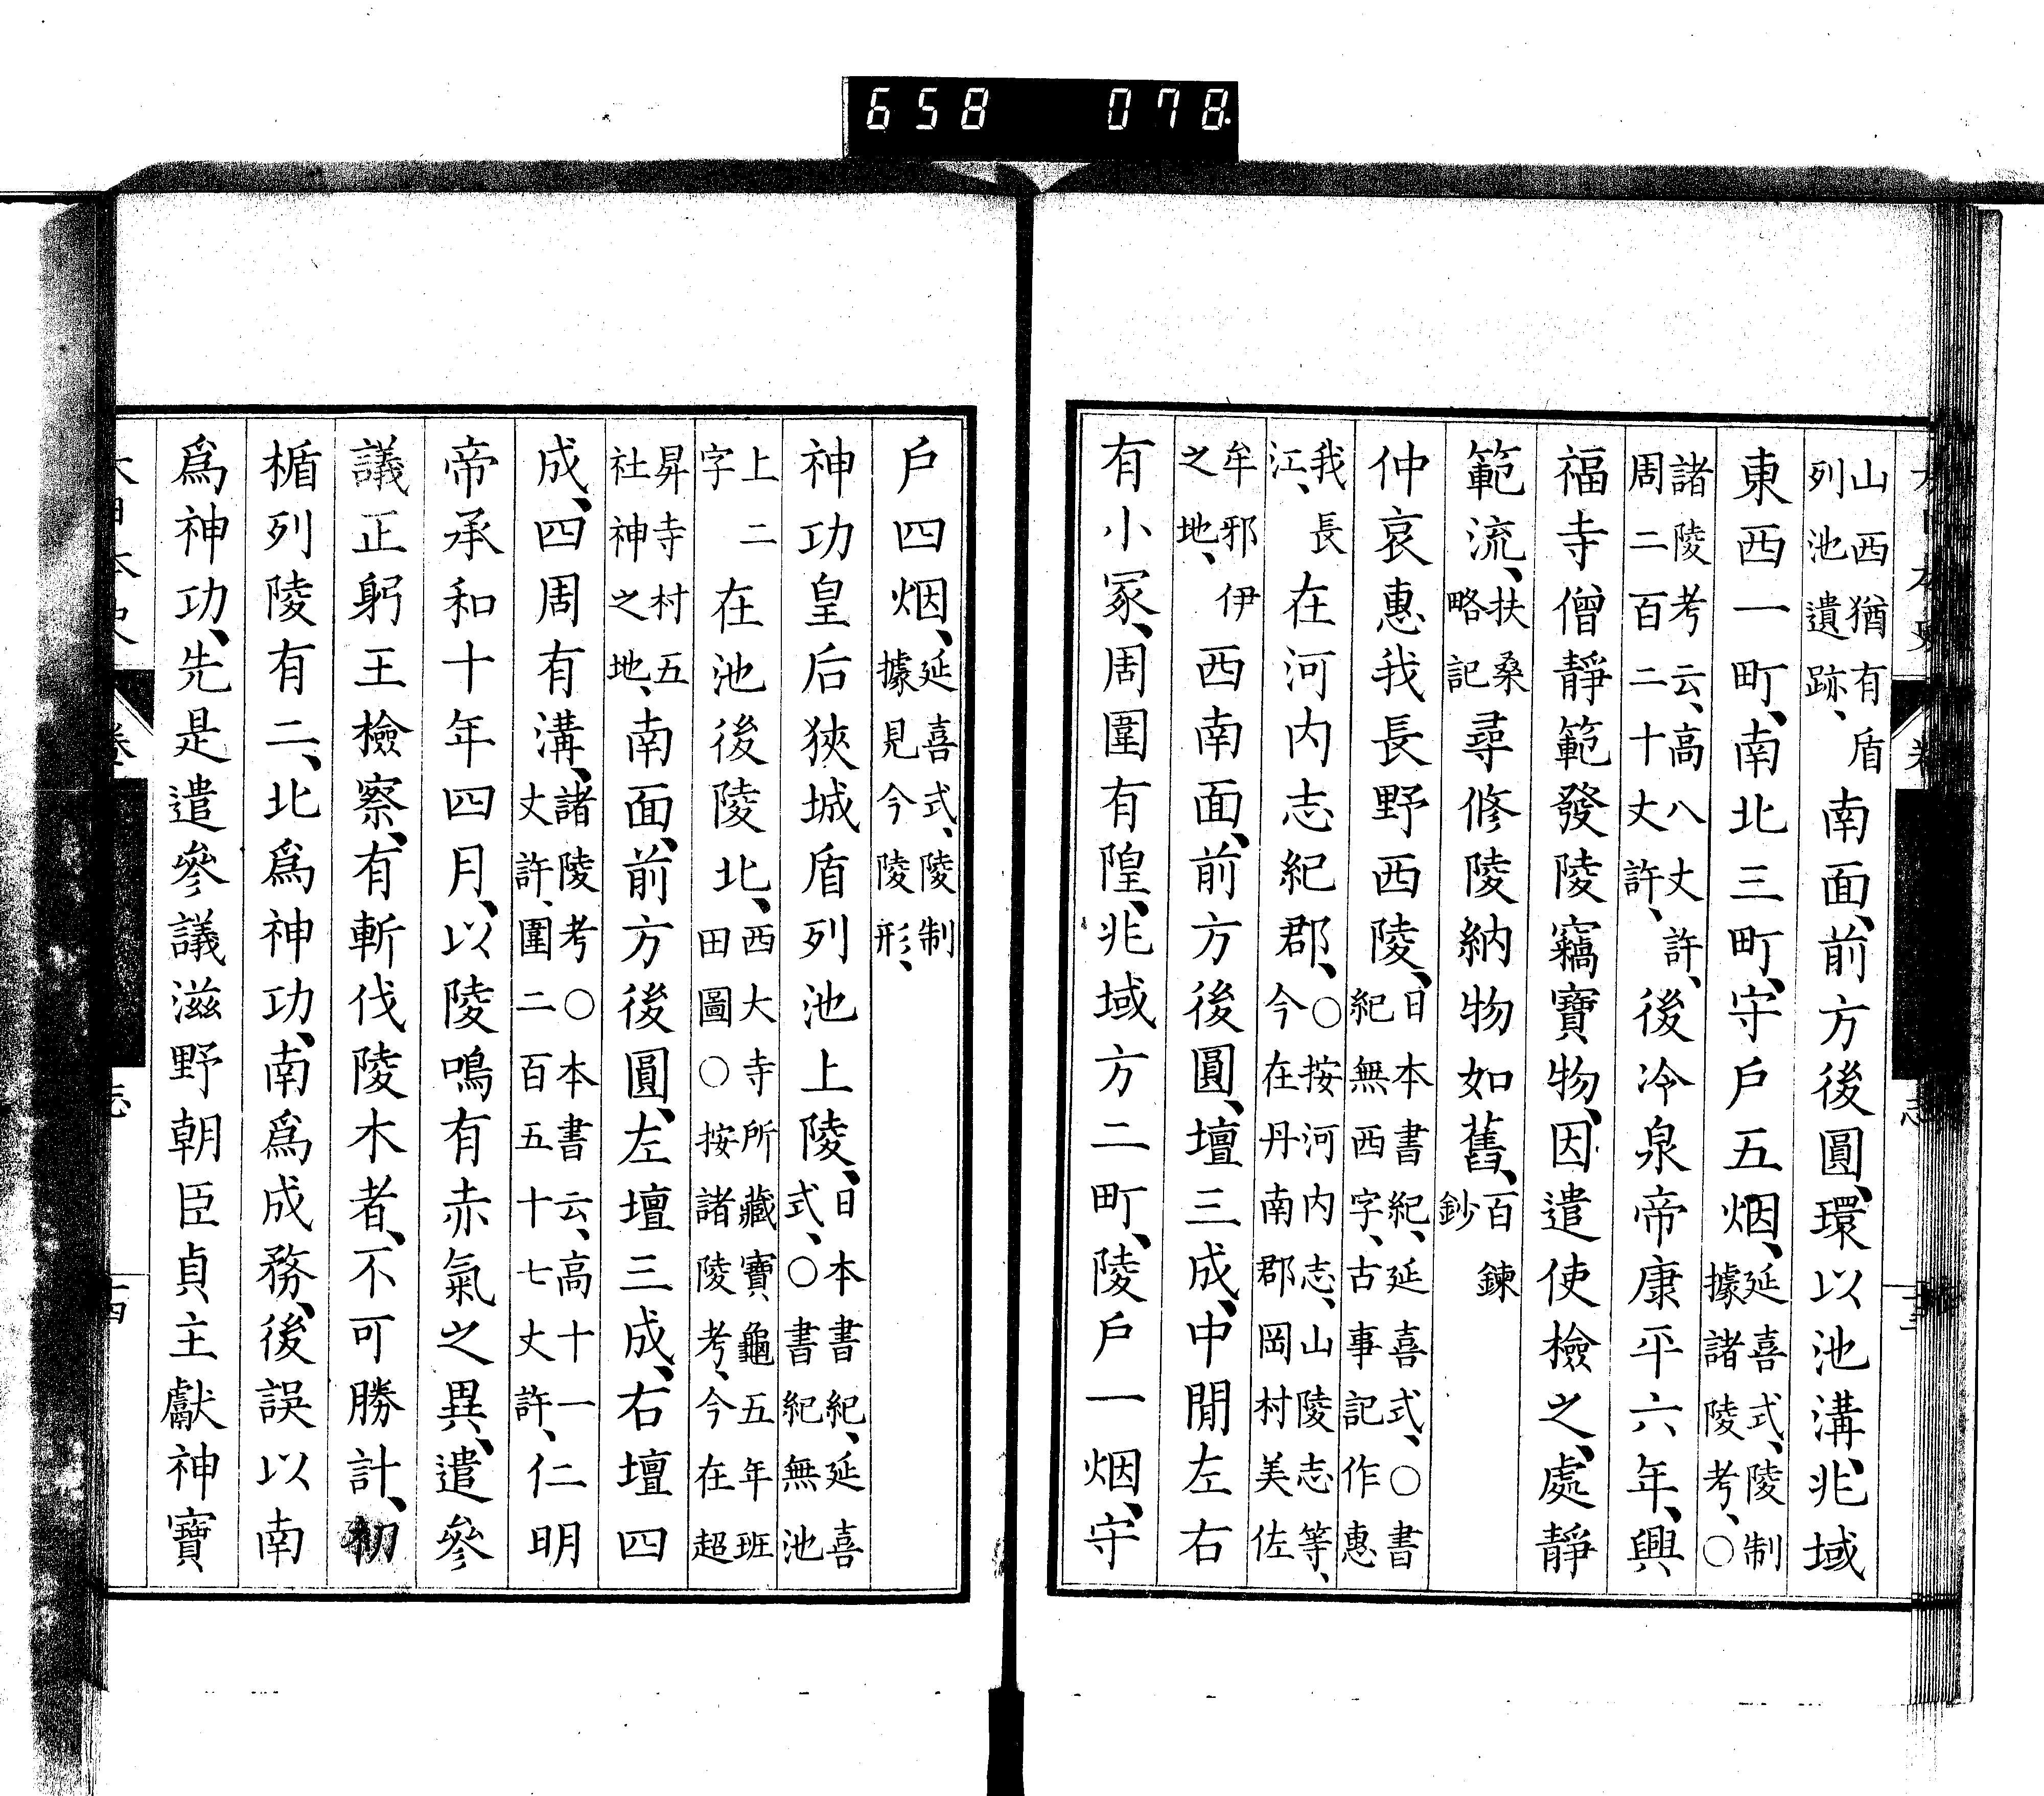 658 078
山西猶有盾列池遺跡、南面、前方後圓、環以池溝、兆域
東西一町、南北三町、守戶五烟、延喜式、陵制據諸陵考、○
諸陵考云、高八丈許、周二百二十丈許、後冷泉帝康平六年、興
福寺僧靜範發陵竊寶物、因遣使檢之、處靜
範流、扶桑略記尋修陵納物如舊、百鍊鈔
仲哀惠我長野西陵、日本書紀、延喜式、○書紀無西字、古事記作惠
我長江、在河內志紀郡、○按河內志、山陵志等、今在丹南郡岡村美佐
牟邪伊之地、西南面、前方後圓、壇三成、中閒左右
有小冢、周圍有隍、兆域方二町、陵戶一烟、守
戶四烟、延喜式、陵制據見今陵形、
神功皇后狹城盾列池上陵、日本書紀、延喜式、○書紀無池
上二字在池後陵北、西大寺所藏寶龜五年班田圖○按諸陵考、今在超
昇寺村五社神之地、南面、前方後圓、左壇三成、右壇四
成、四周有溝、諸陵考○本書云、高十一丈許、圍二百五十七丈許、仁明
帝承和十年四月、以陵鳴有赤氣之異、遣參
議正躬王檢察、有斬伐陵木者、不可勝計、初
楯列陵有二、北爲神功、南爲成務、後誤以南
爲神功、先是遣參議滋野朝臣貞主獻神寶